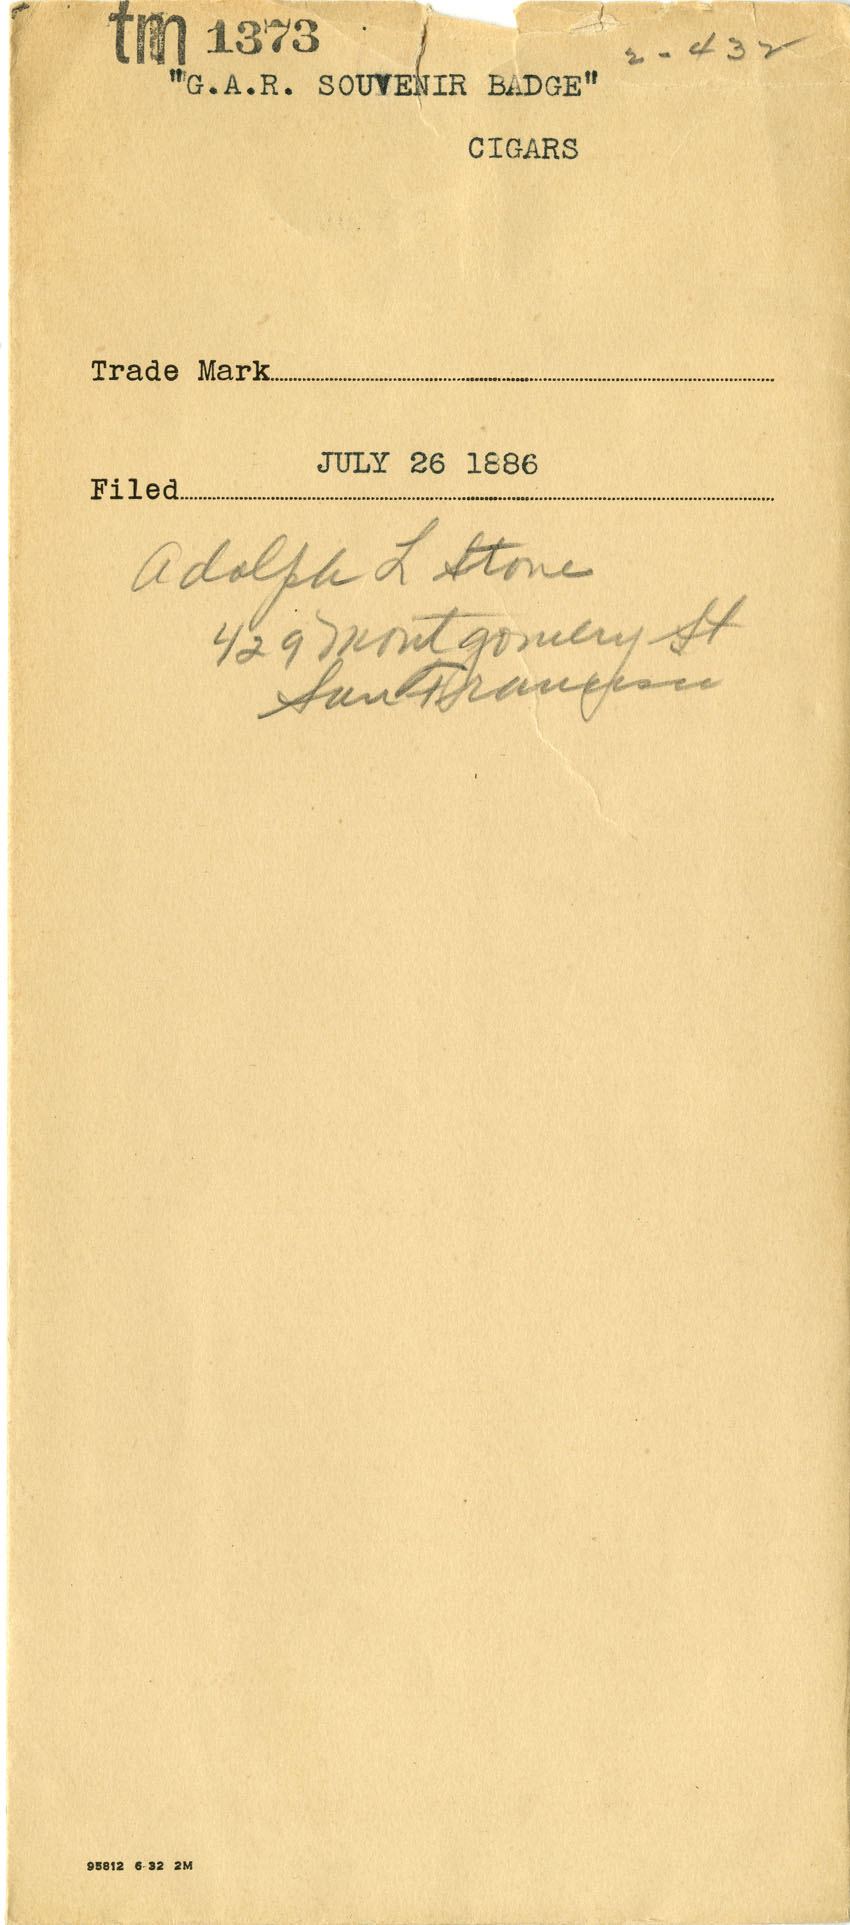 tm 1373
2-432
"G.A.R. SOUVENIR BADGE"
CIGARS
Trade Mark
JULY 26 1886
Filed
Adolph L Stone
429 Montgomery St
San Francisco
95812 6-32 2M